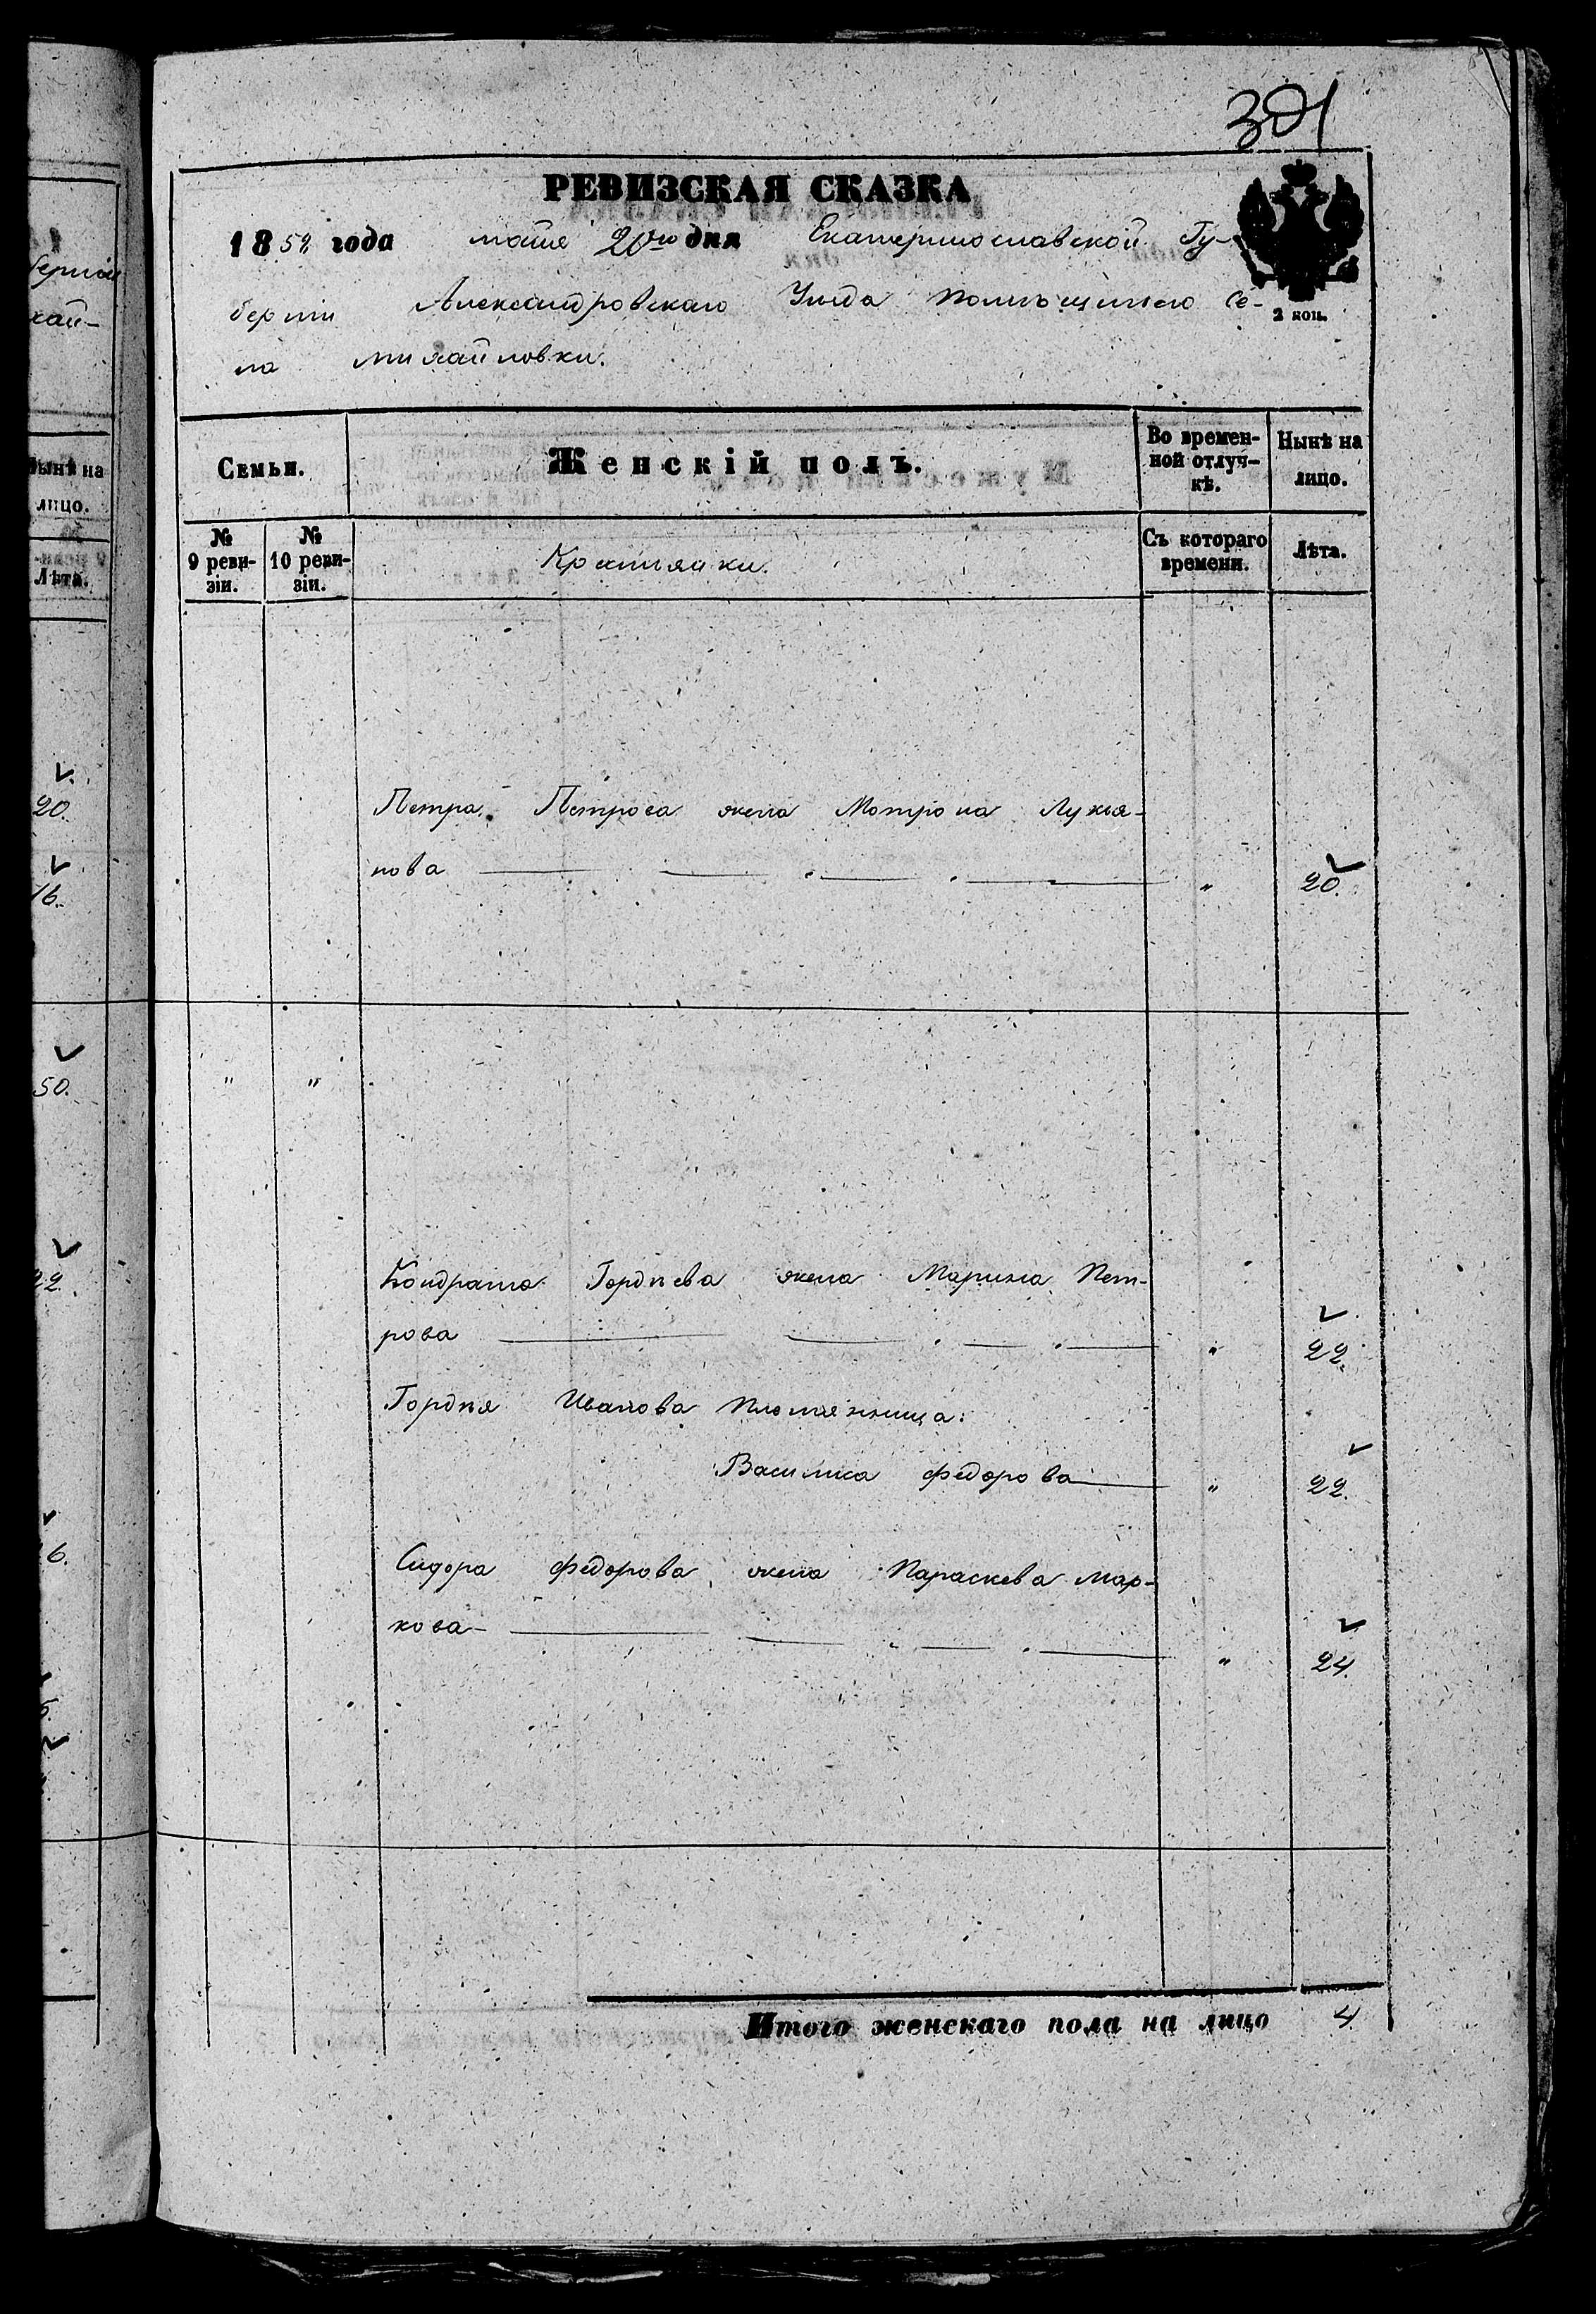 301
РЕВИЗСКАЯ СКАЗКА
1858 года маия 20го дня Екатеринославской Гу-
берніи Александровскаго Уѣзда помѣщичьяго Се-
ла Михайловки.
2 коп.
Семьи.
Женскій полъ.
Во времен-
ной отлуч-
кѣ.
Нынѣ на
лицо.
№
9 реви-
зіи.
№
10 реви-
зіи.
Крестьянки.
Съ котораго
времени.
Лѣта.
Петра Петрова жена Мотрона Лукья-
нова " 20.
" "
Кондрата Гордѣева жена Марина Пет-
рова " 22.
Гордѣя Иванова племянница:
Василиса Федорова " 22.
Сидора Федорова жена Параскева Мар-
кова " 24.
Итого женскаго пола на лицо 4.
Нынѣ на
лицо.
Лѣта.
20.
16.
50.
22.
6.